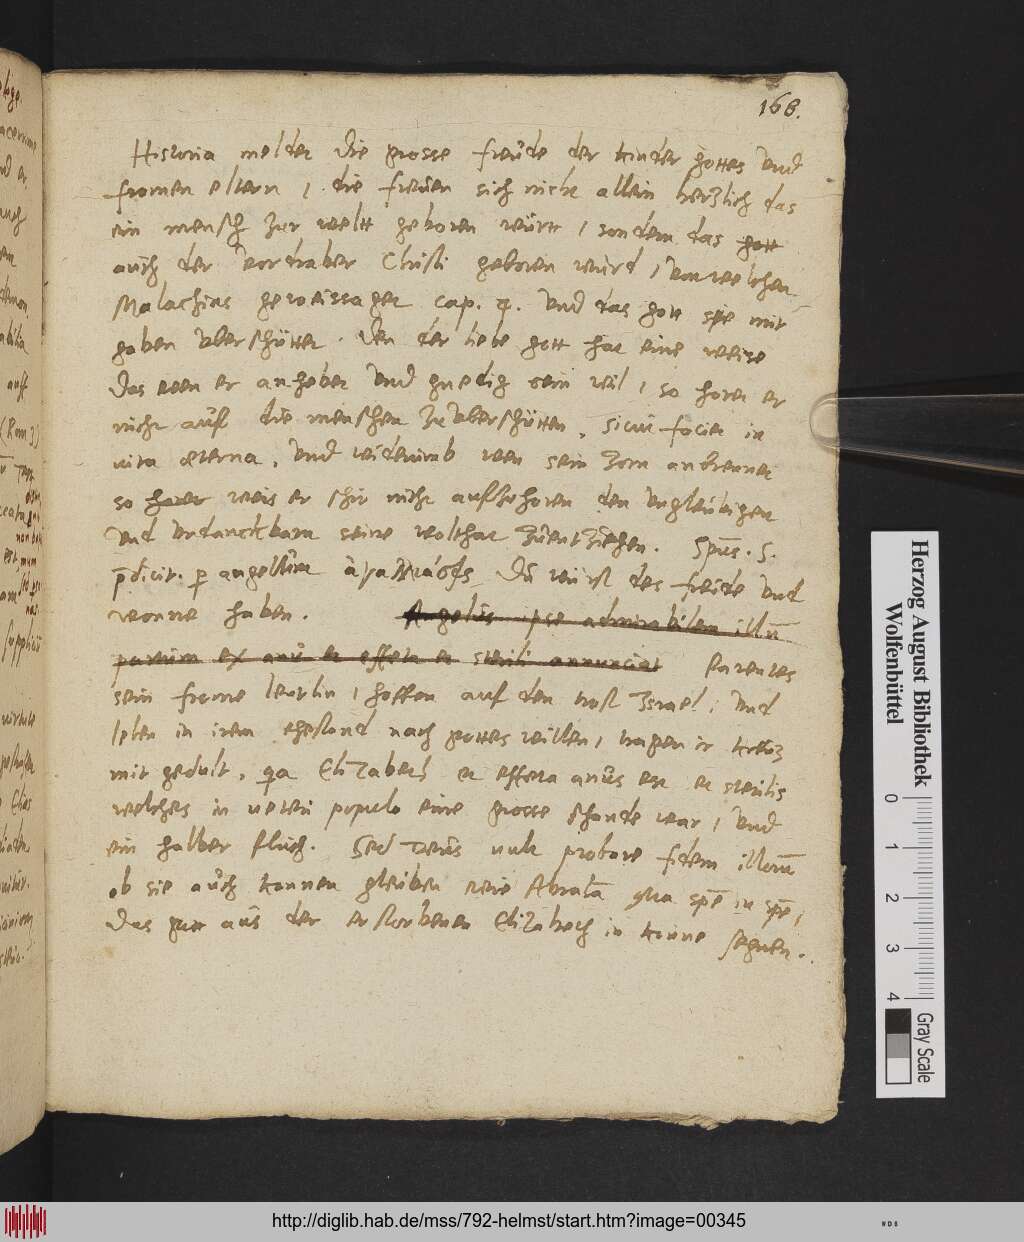 168.
Historia meldet die grosse freude der kinder gottes vnd
fromen eltern, die freuen sich nicht allein hertzlich das
ein mensch zur welt geboren wurt, sondern das gott
auch der vordraber Christi geboren wurd, von welchen
Malachias geweissaget cap. 4. vnd das gott sie mit
gaben uberschüttet. Den der liebe gott hat eine weise
das wen er anhebet vnd gnedig sein wil, so horet er
nicht auf die menschen zu uberschütten, sicut faciet in
vita æterna, vnd widerumb wen sein zorn anbrennet
so horet weis er schir nicht aufhzuhoren den ungleubigen
vnd undanckbarn seine wolthat zuentziehen. Sps. S.
p̄dicit. p angelum ἀγαλλίασις Du wirst des freude vnd
wonne haben. Angelus ipse admirabilem illū
partum ex anu et effeta et sterili annunciat Parentes
sein frome leutlin, hoffen auf den trost Israel, vnd
leben in irem ehestand nach gottes willen, tragen ir kreuz
mit gedult, qa Elizabeth et effeta anus est et sterilis
welches in veteri populo eine grosse schande war, vnd
ein halber fluch. Sed Deus vult probare fidem illorū
ob sie auch konnen gleuben wie Abrahā spē in spē,
das gott aus der erstorbenen Elizabeth in konne segnen.
Herzog August Bibliothek
Wolfenbüttel
0 1 2 3 4
Gray Scale
http://diglib.hab.de/mss/792-helmst/start.htm?image=00345